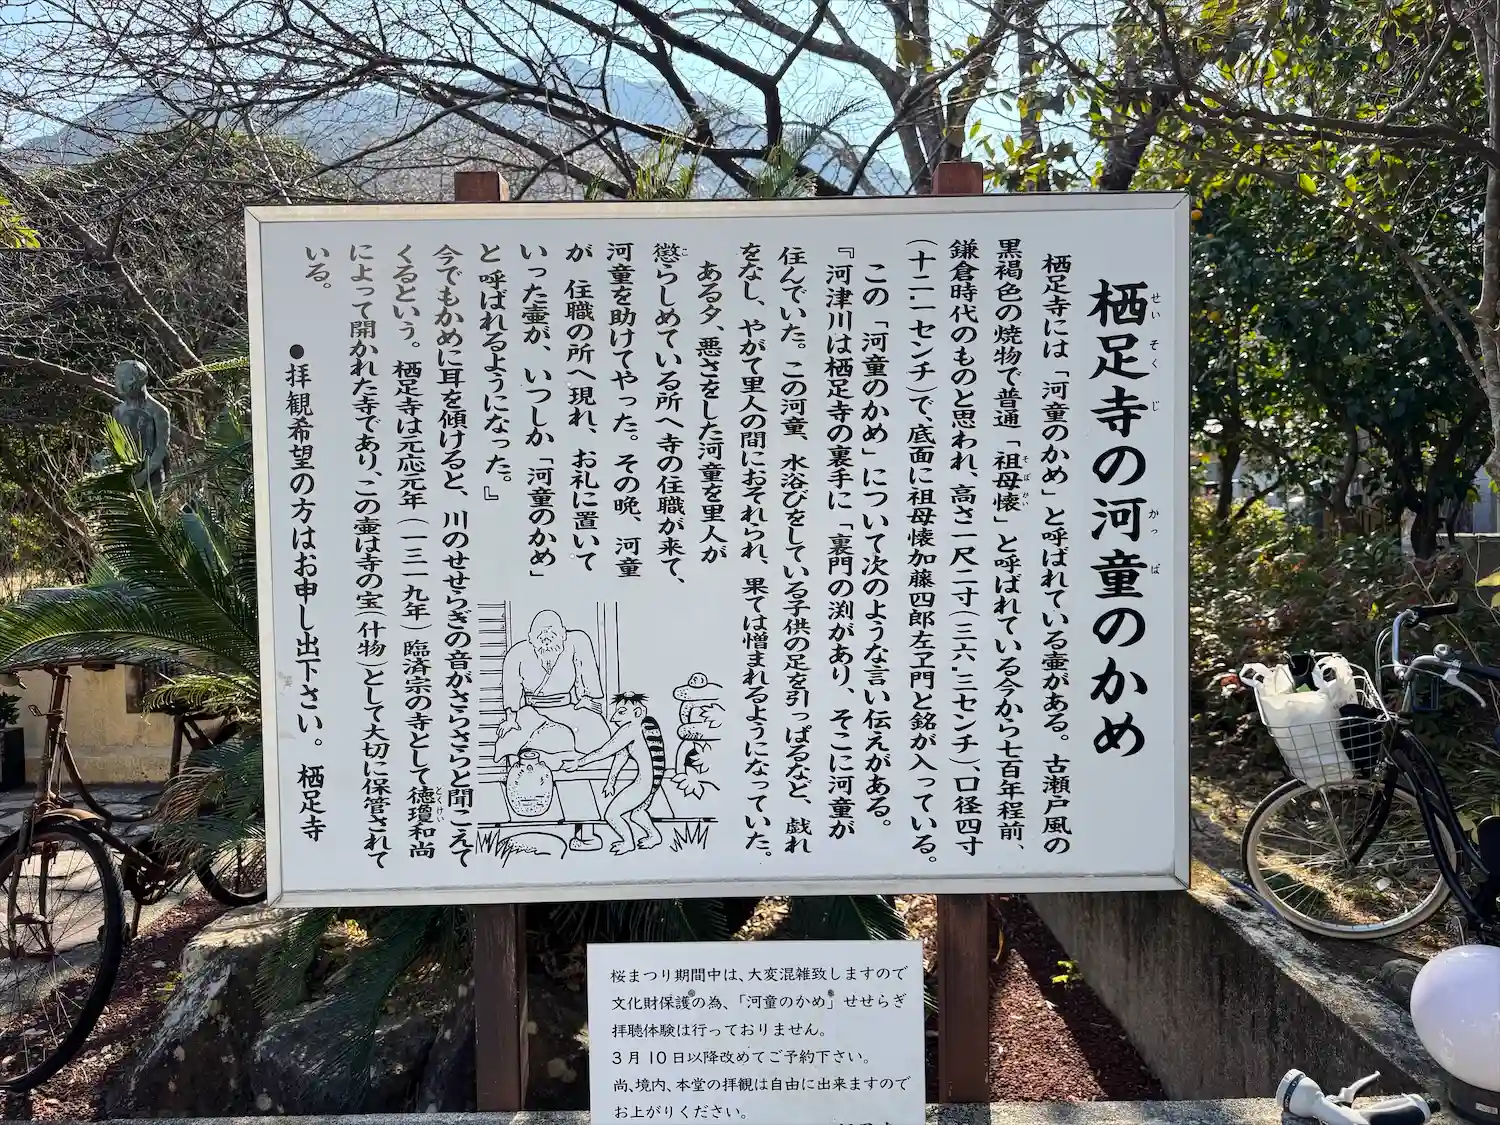 栖足寺の河童のかめ
せいそくじ
かっぱ
栖足寺には「河童のかめ」と呼ばれている壷がある。古瀬戸風の
黒褐色の焼物で普通「祖母懐」と呼ばれている今から七百年程前、
そぼかい
鎌倉時代のものと思われ、高さ一尺二寸(三六.三センチ)、口径四寸
(十二.一センチ)で、底面に祖母懐加藤四郎左ヱ門と銘が入っている。
この「河童のかめ」について次のような言い伝えがある。
『河津川は栖足寺の裏手に「裏門の渕があり、そこに河童が
住んでいた。この河童、水浴びをしている子供の足を引っぱるなど、戯れ
をなし、やがて里人の間におそれられ、果ては憎まれるようになっていた。
ある夕、悪さをした河童を里人が
懲らしめている所へ寺の住職が来て、
こ
河童を助けてやった。その晩、河童
が 住職の所へ現れ、お礼に置いて
いった壷が、いつしか「河童のかめ」
と呼ばれるようになった。』
今でもかめに耳を傾けると、川のせせらぎの音がさらさらと聞こえて
くるという。栖足寺は元応元年(一三一九年)臨済宗の寺として徳瓊和尚
とくけい
によって開かれた寺であり、この壷は寺の宝(什物)として大切に保管されて
いる。
●拝観希望の方はお申し出下さい。 栖足寺
桜まつり期間中は、大変混雑致しますので
文化財保護の為、「河童のかめ」せせらぎ
拝聴体験は行っておりません。
3月10日以降改めてご予約下さい。
尚、境内、本堂の拝観は自由に出来ますので
お上がりください。